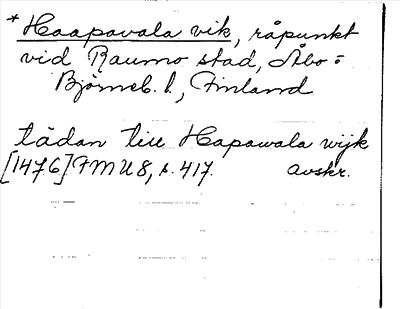 *Haapavala vik, råpunkt
vid Raumo stad, Åbo =
Björneb. l., Finland
tädan till Hapawala wijk
[1476] FMU 8, s. 417. avskr.